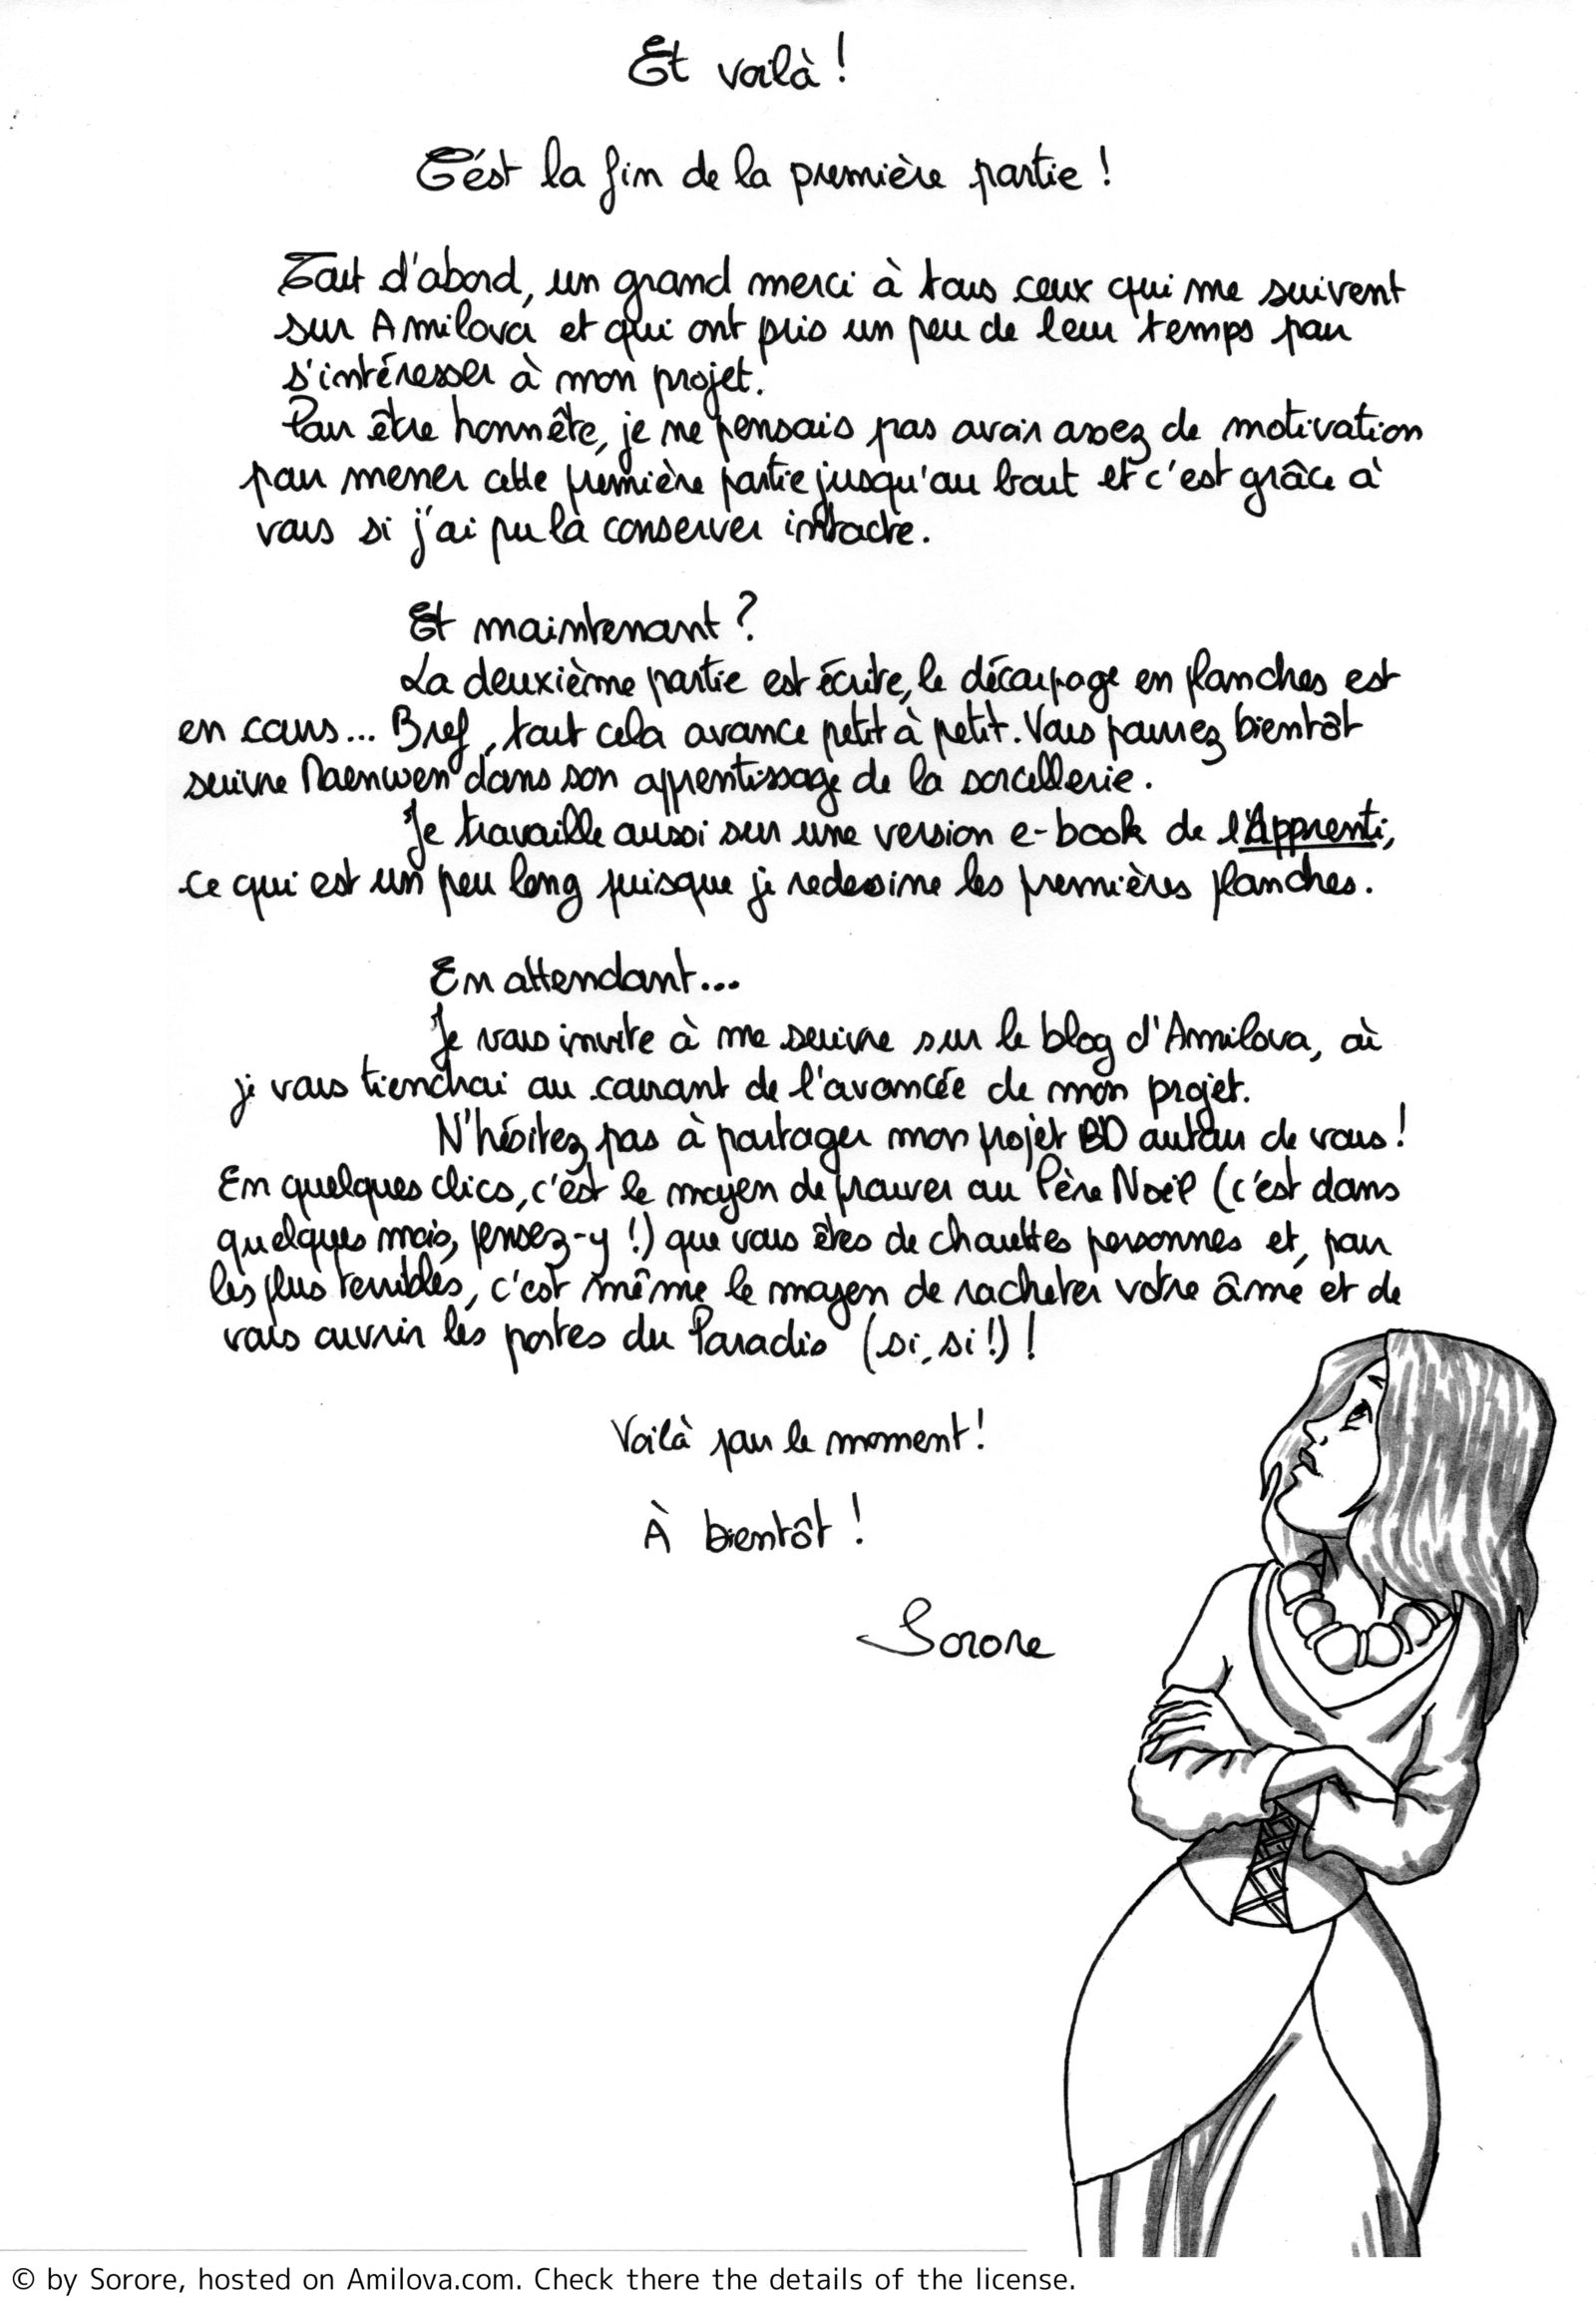 Et voilà !
C'est la fin de la première partie !
Tout d'abord, un grand merci à tous ceux qui me suivent
sur Amilova et qui ont pris un peu de leur temps pour
s'intéresser à mon projet.
Pour être honnête, je ne pensais pas avoir assez de motivation
pour mener cette première partie jusqu'au bout et c'est grâce à
vous si j'ai pu la conserver intacte.
Et maintenant ?
La deuxième partie est écrite, le découpage en planches est
en cours... Bref, tout cela avance petit à petit. Vous pourrez bientôt
suivre Naenwen dans son apprentissage de la sorcellerie.
Je travaille aussi sur une version e-book de l'Apprenti,
ce qui est un peu long puisque je redessine les premières planches.
En attendant...
Je vous invite à me suivre sur le blog d'Amilova, où
je vous tiendrai au courant de l'avancée de mon projet.
N'hésitez pas à partager mon projet BD autour de vous !
En quelques clics, c'est le moyen de prouver au Père Noël (c'est dans
quelques mois, pensez-y !) que vous êtes de chouettes personnes et, pour
les plus terribles, c'est même le moyen de racheter votre âme et de
vous ouvrir les portes du Paradis (si, si !) !
Voilà pour le moment !
À bientôt !
Sorore
© by Sorore, hosted on Amilova.com. Check there the details of the license.